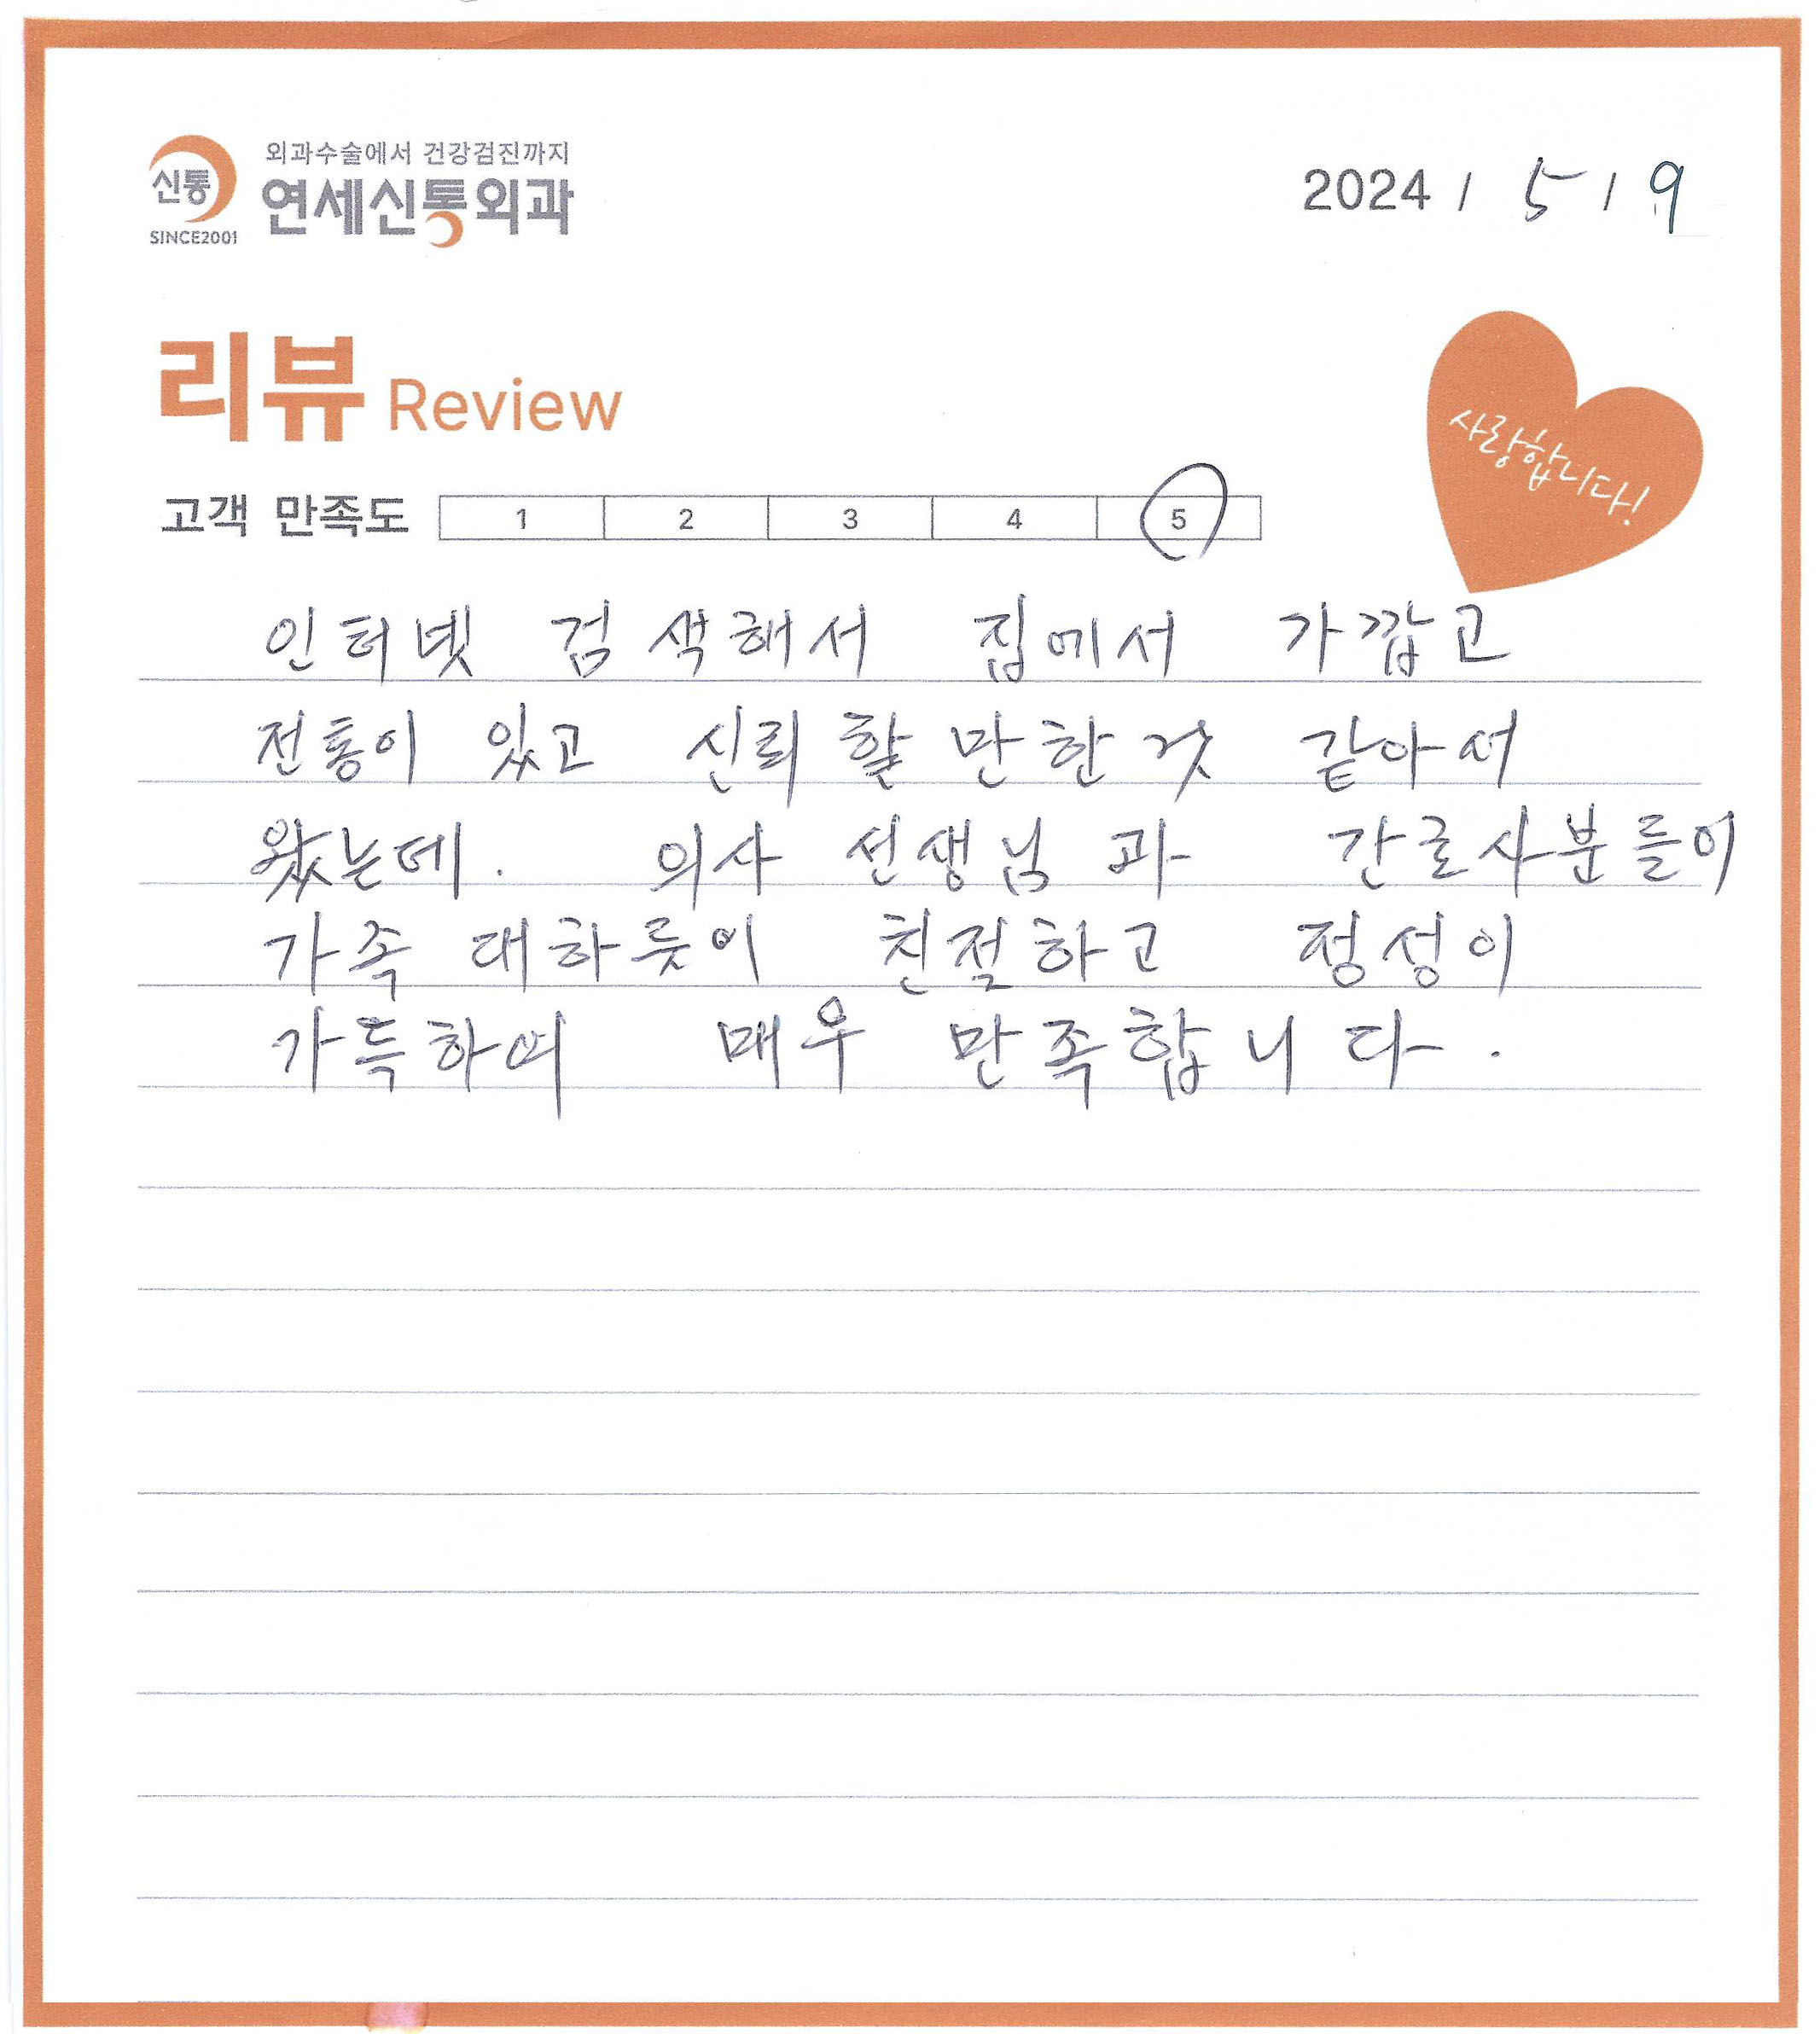 외과수술에서 건강검진까지
신통
연세신통외과
SINCE2001
2024 / 5 / 9
리뷰 Review
사랑합니다!
고객 만족도 1 2 3 4 5
인터넷 검색해서 집에서 가깝고
전통이 있고 신뢰할만한것 같아서
왔는데. 의사 선생님과 간호사분들이
가족 대하듯이 친절하고 정성이
가득하여 매우 만족합니다.